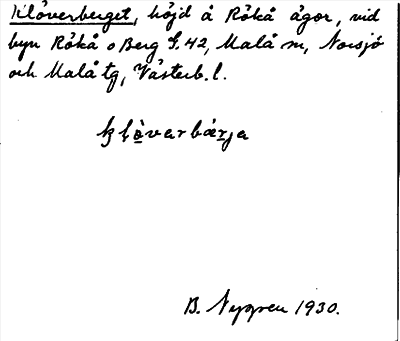 Klöverberget, höjd å Rökå ägor, vid
byn Rökå o Berg S. 42, Malå sn, Norsjö
och Malå tg, Västerb. l.
ḱl̥ö̀varbærja
B. Nygren 1930.